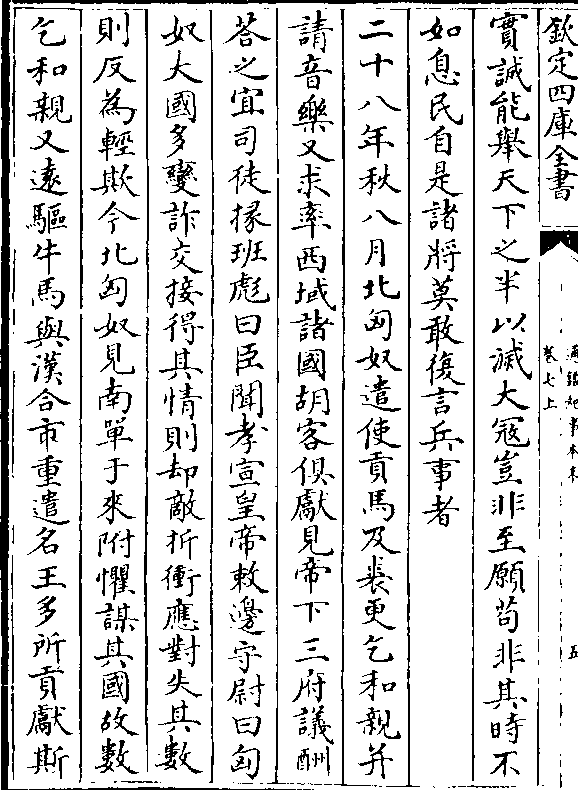 欽定四庫全書
通鑑紀事本末
卷七上
五
實誠能舉天下之半以滅大寇豈非至願苟非其時不
如息民自是諸將莫敢復言兵事者
二十八年秋八月北匈奴遣使貢馬及裘更乞和親并
請音樂又求率西域諸國胡客俱獻見帝下三府議酬
荅之宜司徒掾班彪曰臣聞孝宣皇帝敕邊守尉曰匈
奴大國多變詐交接得其情則却敵折衝應對失其數
則反為輕欺今北匈奴見南單于來附懼謀其國故數
乞和親又遠驅牛馬與漢合市重遣名王多所貢獻斯